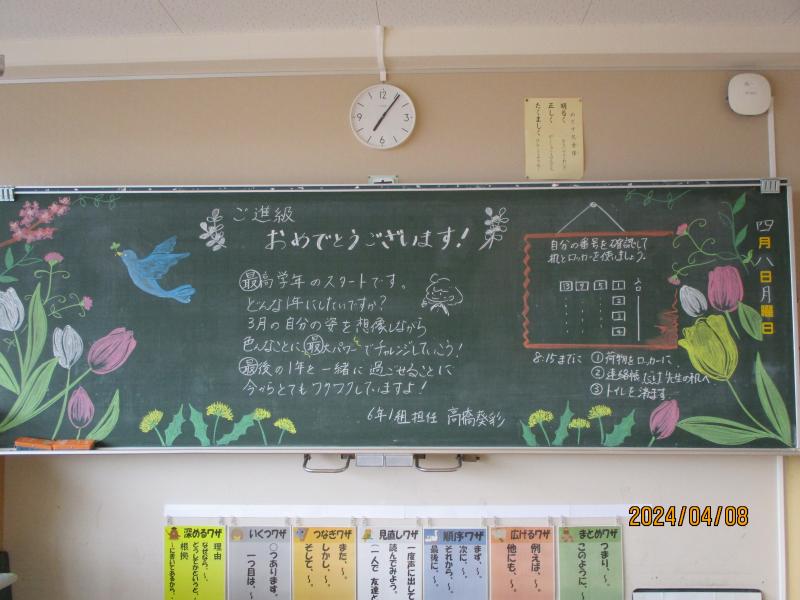 ご進級
おめでとうございます!
最高学年のスタートです。
どんな1年にしたいですか?
3月の自分の姿を想像しながら
色んなことに、最大パワーでチャレンジしていこう!
最後の1年を一緒に過ごせることに
今からとてもワクワクしていますよ!
6年1組担任 高橋葵彩
自分の番号を確認して
机とロッカーを使いましょう。
8:15までに ①荷物をロッカーに
②連絡帳だけ先生の机へ
③トイレを済ます
四月八日月曜日
明るく
正しく
たくましく
深めるワザ
理由
なぜなら、~。
根拠
いくつワザ
○つあります。
一つ目は、~
つなぎワザ
また、~。
しかし、~。
そして、~。
見直しワザ
一度声に出して
読んでみよう。
順序ワザ
まず、~。
次に、~。
それから、~。
最後に、~。
広げるワザ
例えば、~。
他にも、~。
まとめワザ
つまり、~。
このように、~
2024/04/08